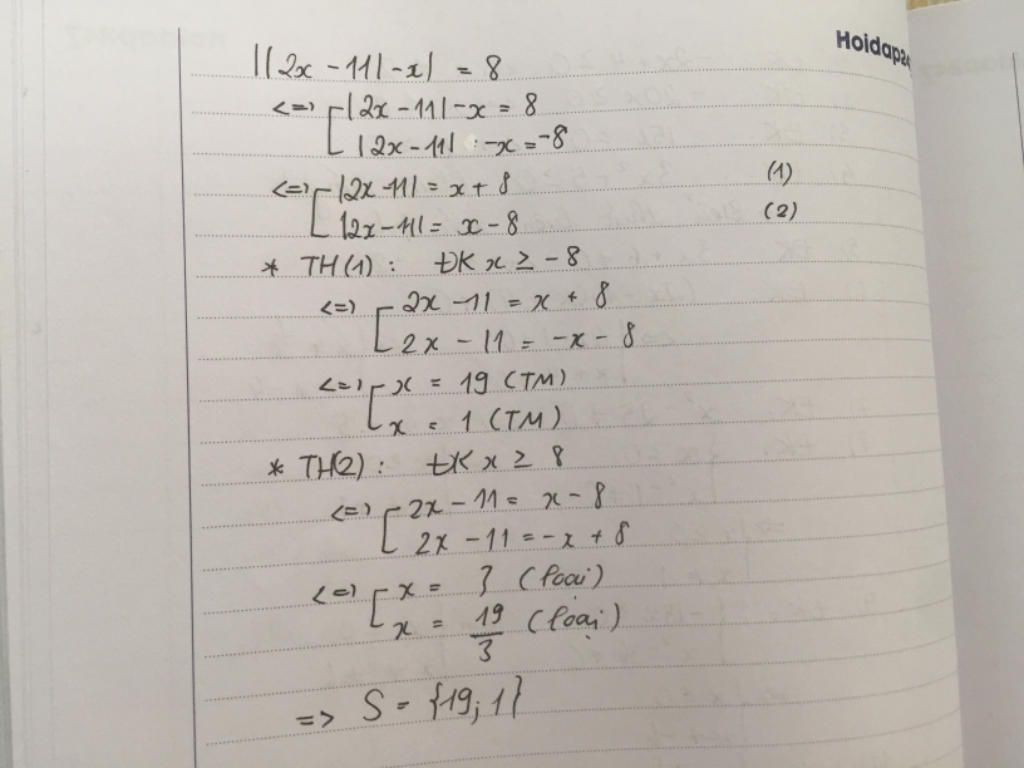 Hoidap2
||2x - 11| - x| = 8
<=> [ |2x - 11| - x = 8
|2x - 11| - x = -8
<=> [ |2x - 11| = x + 8 (1)
|2x - 11| = x - 8 (2)
* TH(1) : ĐK x ≥ - 8
<=> [ 2x - 11 = x + 8
2x - 11 = -x - 8
<=> [ x = 19 (TM)
x = 1 (TM)
* TH(2) : ĐK x ≥ 8
<=> [ 2x - 11 = x - 8
2x - 11 = -x + 8
<=> [ x = 3 (loại)
x = 19/3 (loại)
=> S = {19; 1}